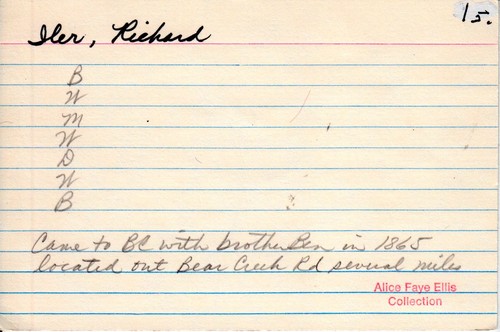 15.
Iler, Richard
B
W
M
W
D
W
B ?
Came to BC with brother Ben in 1865
located out Bear Creek Rd several miles
Alice Faye Ellis
Collection